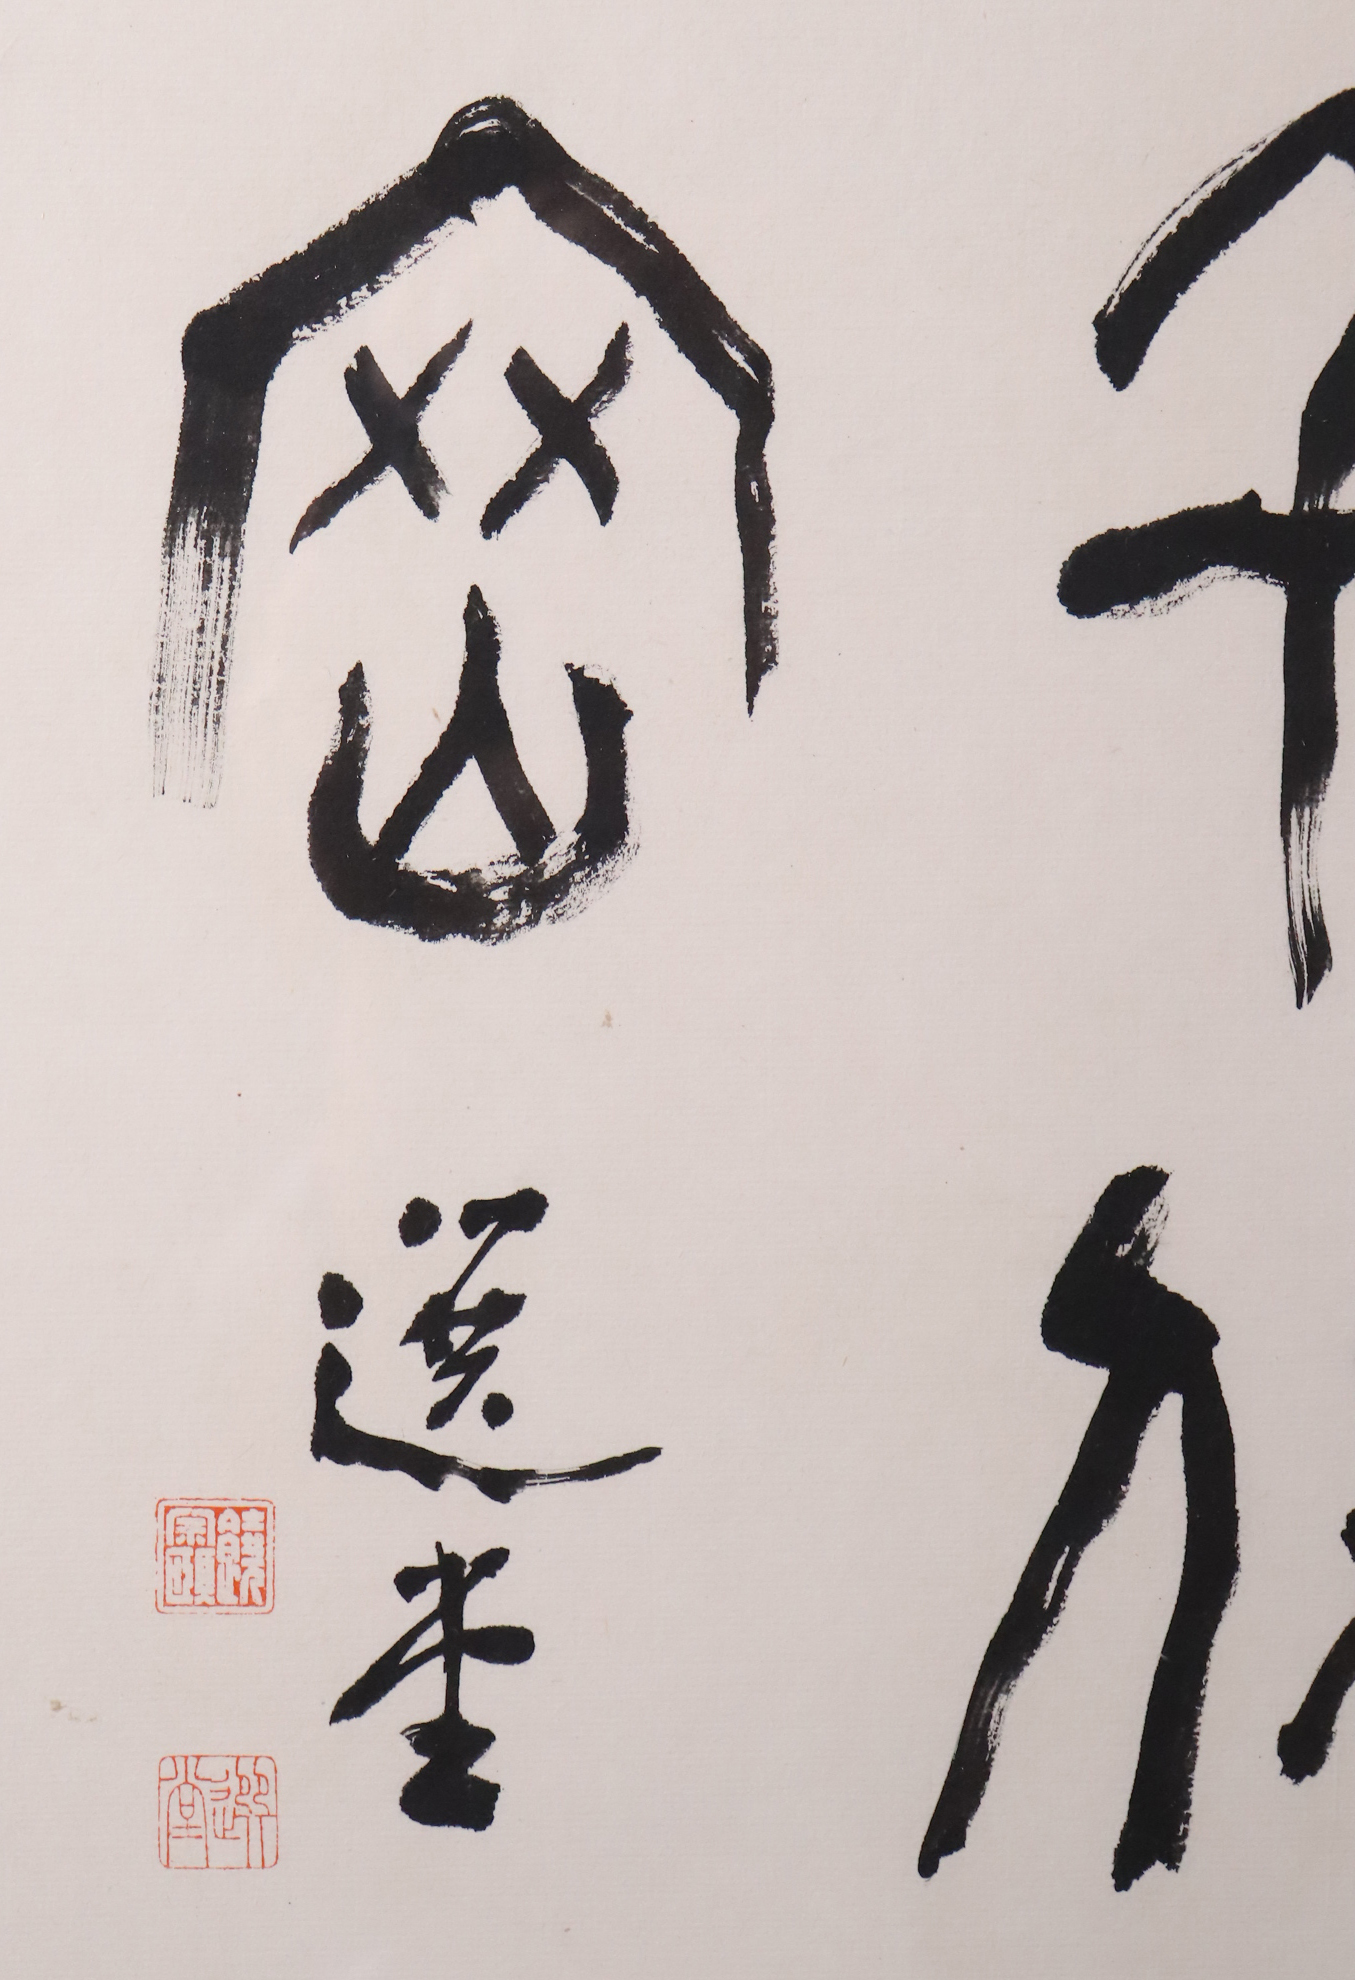 岡
選堂
饒宗頤
選堂